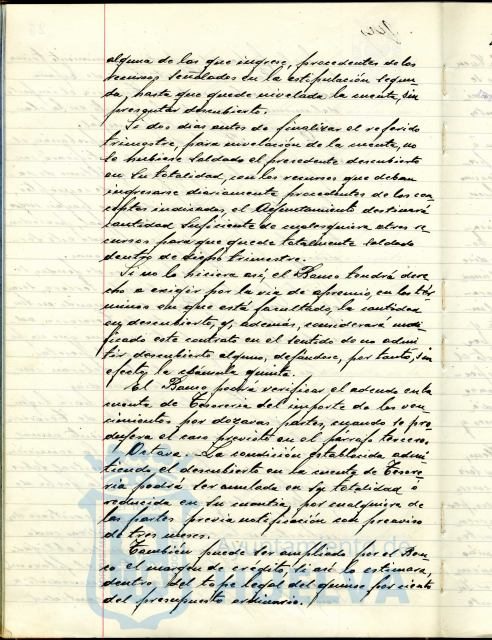 alguna de las que ingrese, procedentes de los
recursos señalados en la estipulación segun-
da, hasta que quede nivelada la cuenta, sin
presentar descubierto.
Si dos días antes de finalizar el referido
trimestre, para nivelación de la cuenta, no
se hubiese saldado el precedente descubierto
en su totalidad, con los recursos que deban
ingresarse diariamente procedentes de los con-
ceptos indicados, el Ayuntamiento destinará
cantidad suficiente de cualesquiera otros re-
cursos para que quede totalmente saldado
dentro de dicho trimestre.
Si no lo hiciera así, el Banco tendrá dere-
cho a exigir por la vía de apremio, en los tér-
minos en que está facultado, la cantidad
en descubierto, y, además, considerará modi-
ficado este contrato en el sentido de no admi-
tir, descubierto alguno, dejándose, por tanto, sin
efecto, la cláusula quinta.
El Banco podrá verificar el adeudo en la
cuenta de Tesorería del importe de los ven-
cimientos por dozavas partes, cuando se pro-
dujera el caso previsto en el párrafo tercero.
Octava. La condición establecida admi-
tiendo el descubierto en la cuenta de Tesore-
ría podrá ser anulada en su totalidad ó
reducida en su cuantía, por cualquiera de
las partes previa notificación con preaviso
de tres meses.
También puede ser ampliado por el Ban-
co el margen de crédito, si así lo estimara,
dentro del tope legal del quince por ciento
del presupuesto ordinario.
Ayuntamiento de
HUELVA